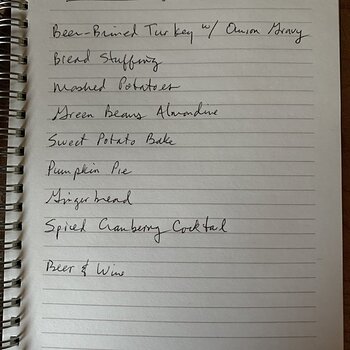 Beer-Brined Turkey w/ Onion Gravy
Bread Stuffing
Mashed Potatoes
Green Beans Almondine
Sweet Potato Bake
Pumpkin Pie
Gingerbread
Spiced Cranberry Cocktail
Beer & Wine